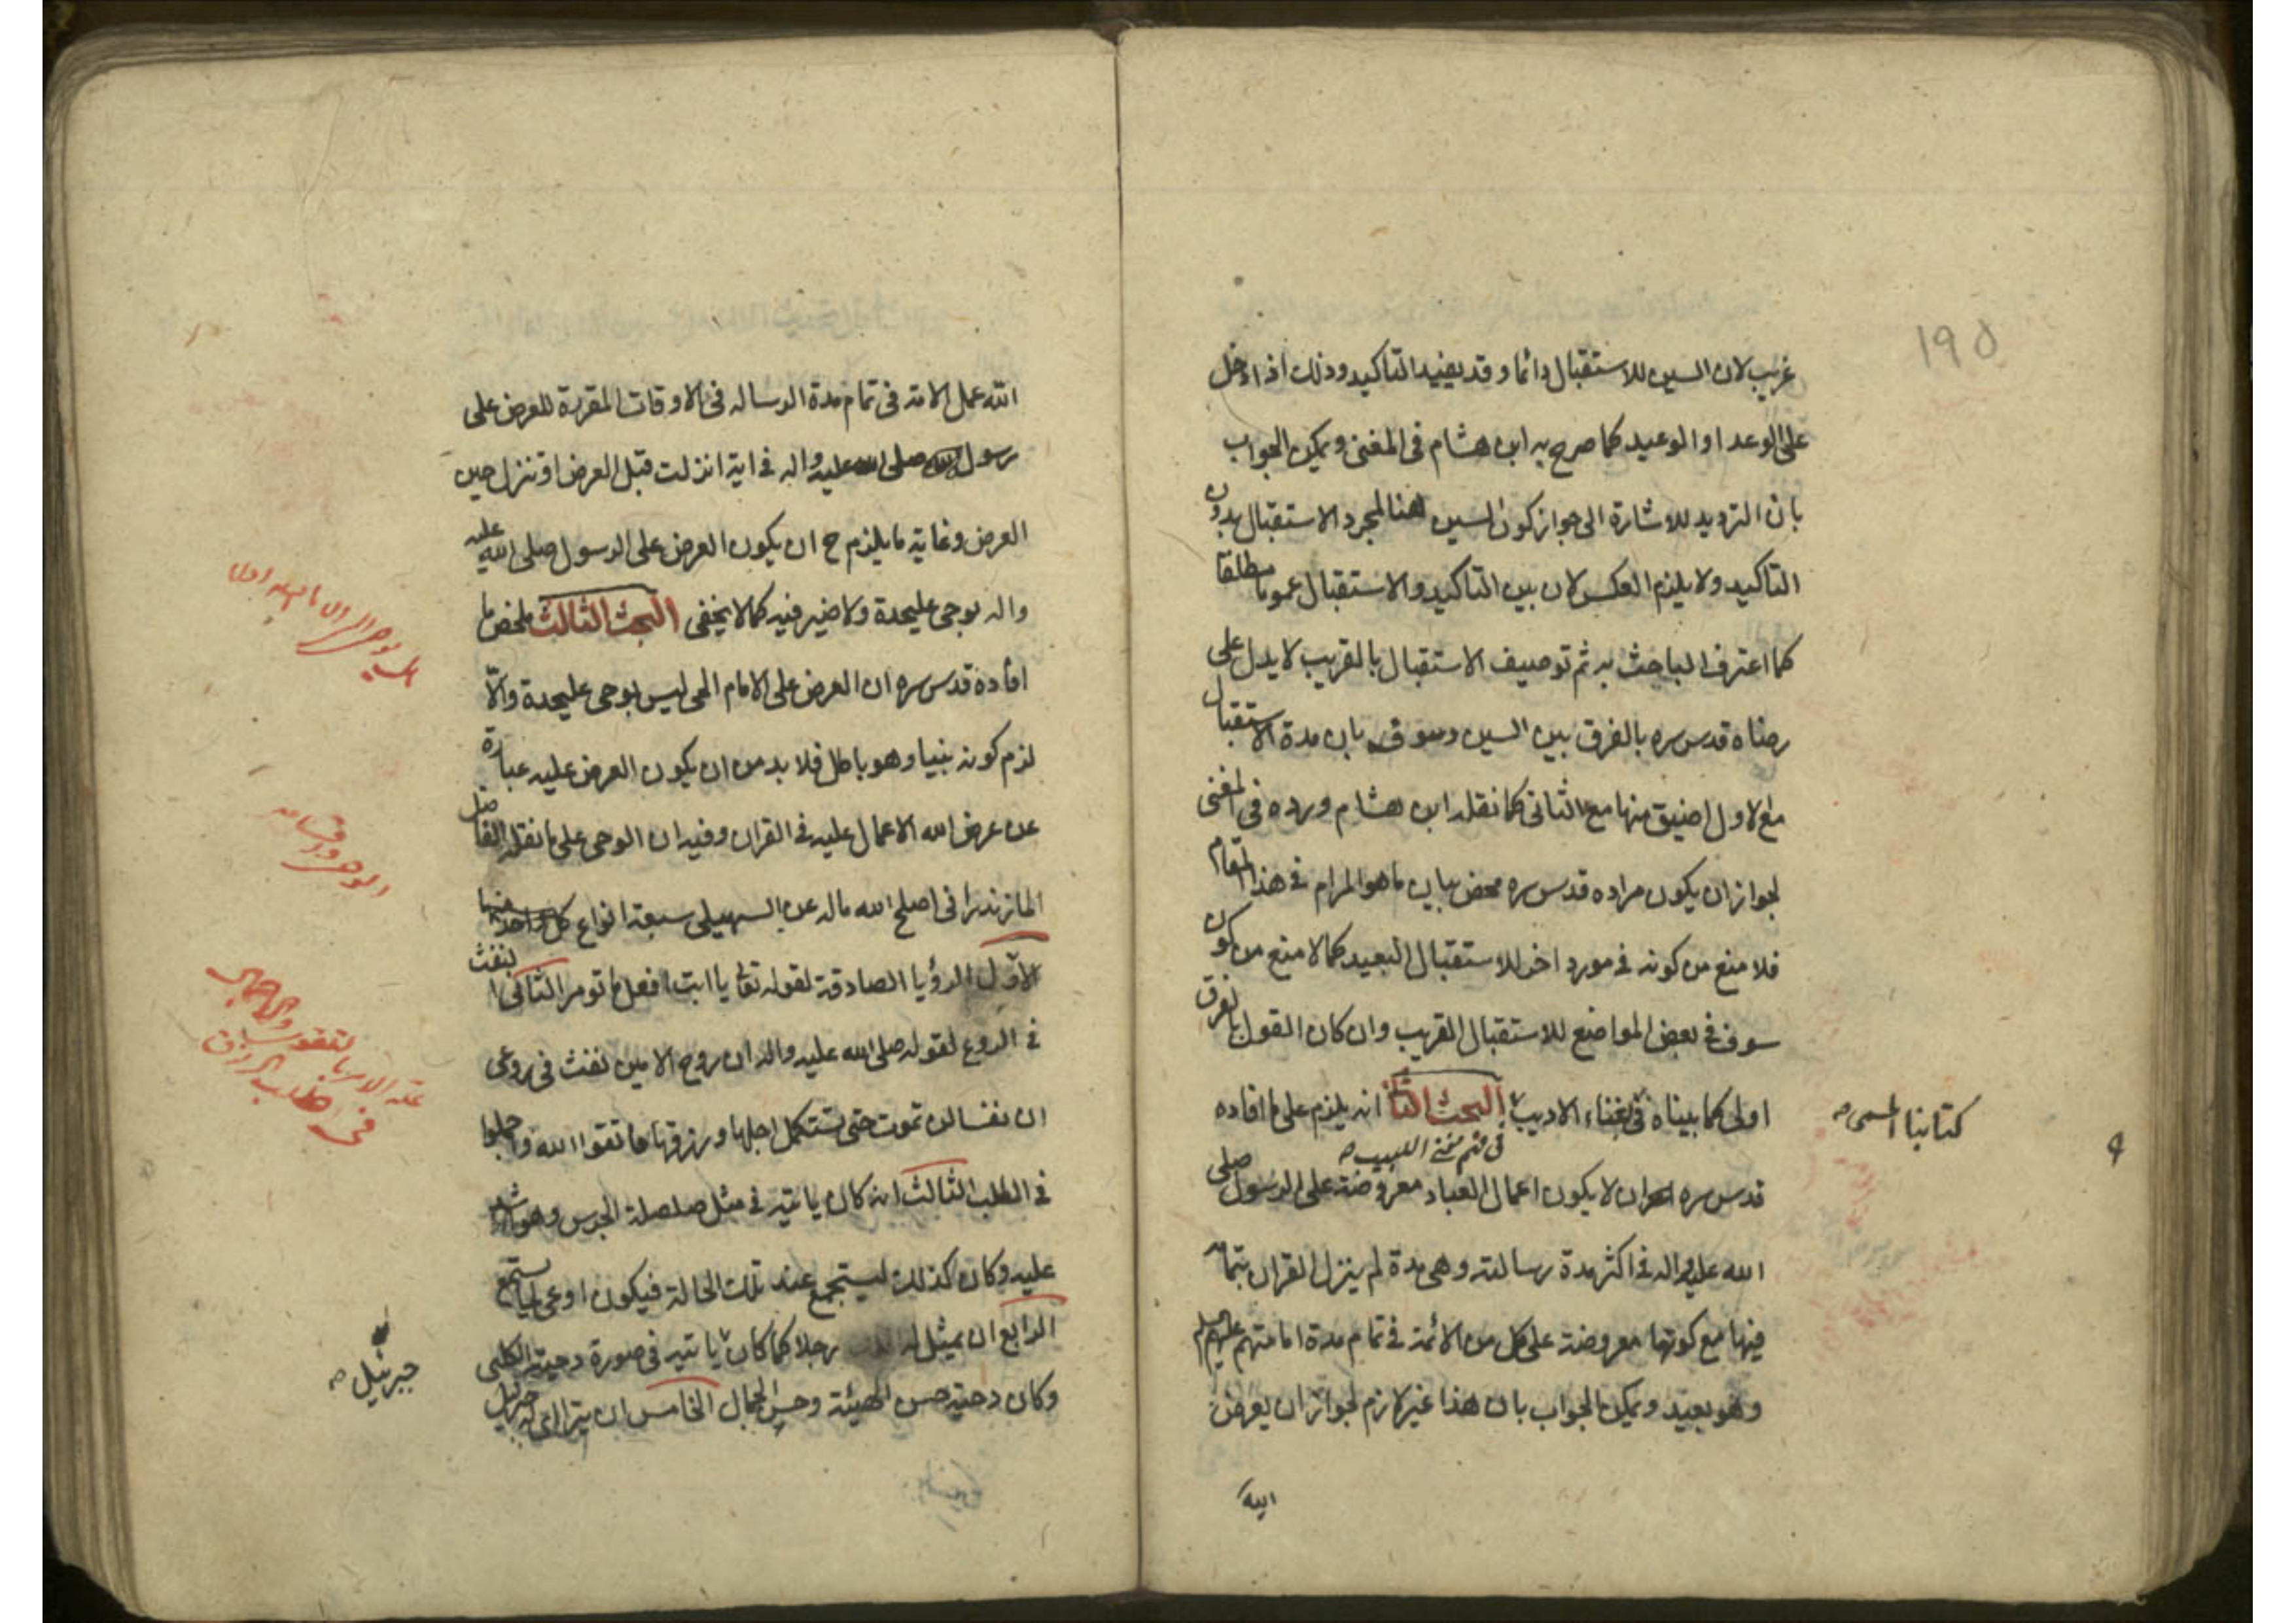 ١٩٥
غريب لان السين للاستقبال دائما و قد يفيد التاكيد وذلك اذا دخل
على الوعد او الوعيد كما صرح به ابن هشام فى المغنى ويمكن الجواب
بان الترديد للاشارة الى جواز كون السين هنا لمجرد الاستقبال بدون
التاكيد ولا يلزم العكس لان بين التاكيد والاستقبال عموما مطلقا
كما اعترف الباحث به ثم توصيف الاستقبال بالقريب لا يدل على
رضاه قدس سره بالفرق بين السين وسوف بان مدة الاستقبال
مع الاول اضيق منها مع الثانى كما نقله ابن هشام ورده فى المغنى
لجواز ان يكون مراده قدس سره محض بيان ما هو المرام فى هذا المقام
فلا منع من كونه فى مورد اخر للاستقبال البعيد كما لا منع من كون
سوف فى بعض المواضع للاستقبال القريب وان كان القول بالفرق
اولى كما بيناه فى غناء الاديب البحث الثانى انه يلزم على ما افاده
كتابنا المسمى
فى فهم مغنى اللبيب
قدس سره ان لا يكون اعمال العباد معروضة على الرسول صلى
الله عليه واله فى اكثر مدة رسالته وهى مدة لم ينزل القران بتمامه
فيها مع كونها معروضة على كل من الائمة فى تمام مدة امامتهم عليهم السلم
وهو بعيد ويمكن الجواب بان هذا غير لازم لجواز ان يعرض
الله
الله عمل الامة فى تمام مدة الرسالة فى الاوقات المقررة للعرض على
رسول الله صلى الله عليه واله فى اية انزلت قبل العرض او تنزل حين
العرض وغاية ما يلزم ح ان يكون العرض على الرسول صلى الله عليه
واله بوحى عليحدة ولا ضير فيه كما لا يخفى البحث الثالث ملخص ما
افاده قدس سره ان العرض على الامام الحى ليس بوحى عليحدة والّا
لزم كونه نبيا وهو باطل فلا بد من ان يكون العرض عليه عبارة
عن عرض الله الاعمال عليه فى القران وفيه ان الوحى على ما نقله الفاضل
المازندرانى اصلح الله ماله عن السهيلى سبعة انواع كل واحد منها
الاوّل الرؤيا الصادقة لقوله تعا يا ابت افعل ما تومر الثانى النفث
فى الروع لقوله صلى الله عليه واله ان روح الامين نفث فى روعى
ان نفسا لن تموت حتى تستكمل اجلها ورزقها فاتقوا الله واجملوا
فى الطلب الثالث انه كان ياتيه فى مثل صلصلة الجرس وهو اشد
عليه وكان كذلك ليستجمع عند تلك الحالة فيكون اوعى لما يستمع
الرابع ان يمثل له رجلا كما كان ياتيه فى صورة دحية الكلبى
جبرئيل
وكان دحية حسن الهيئة وحسن الجمال الخامس ان يتراأى له جبرئيل